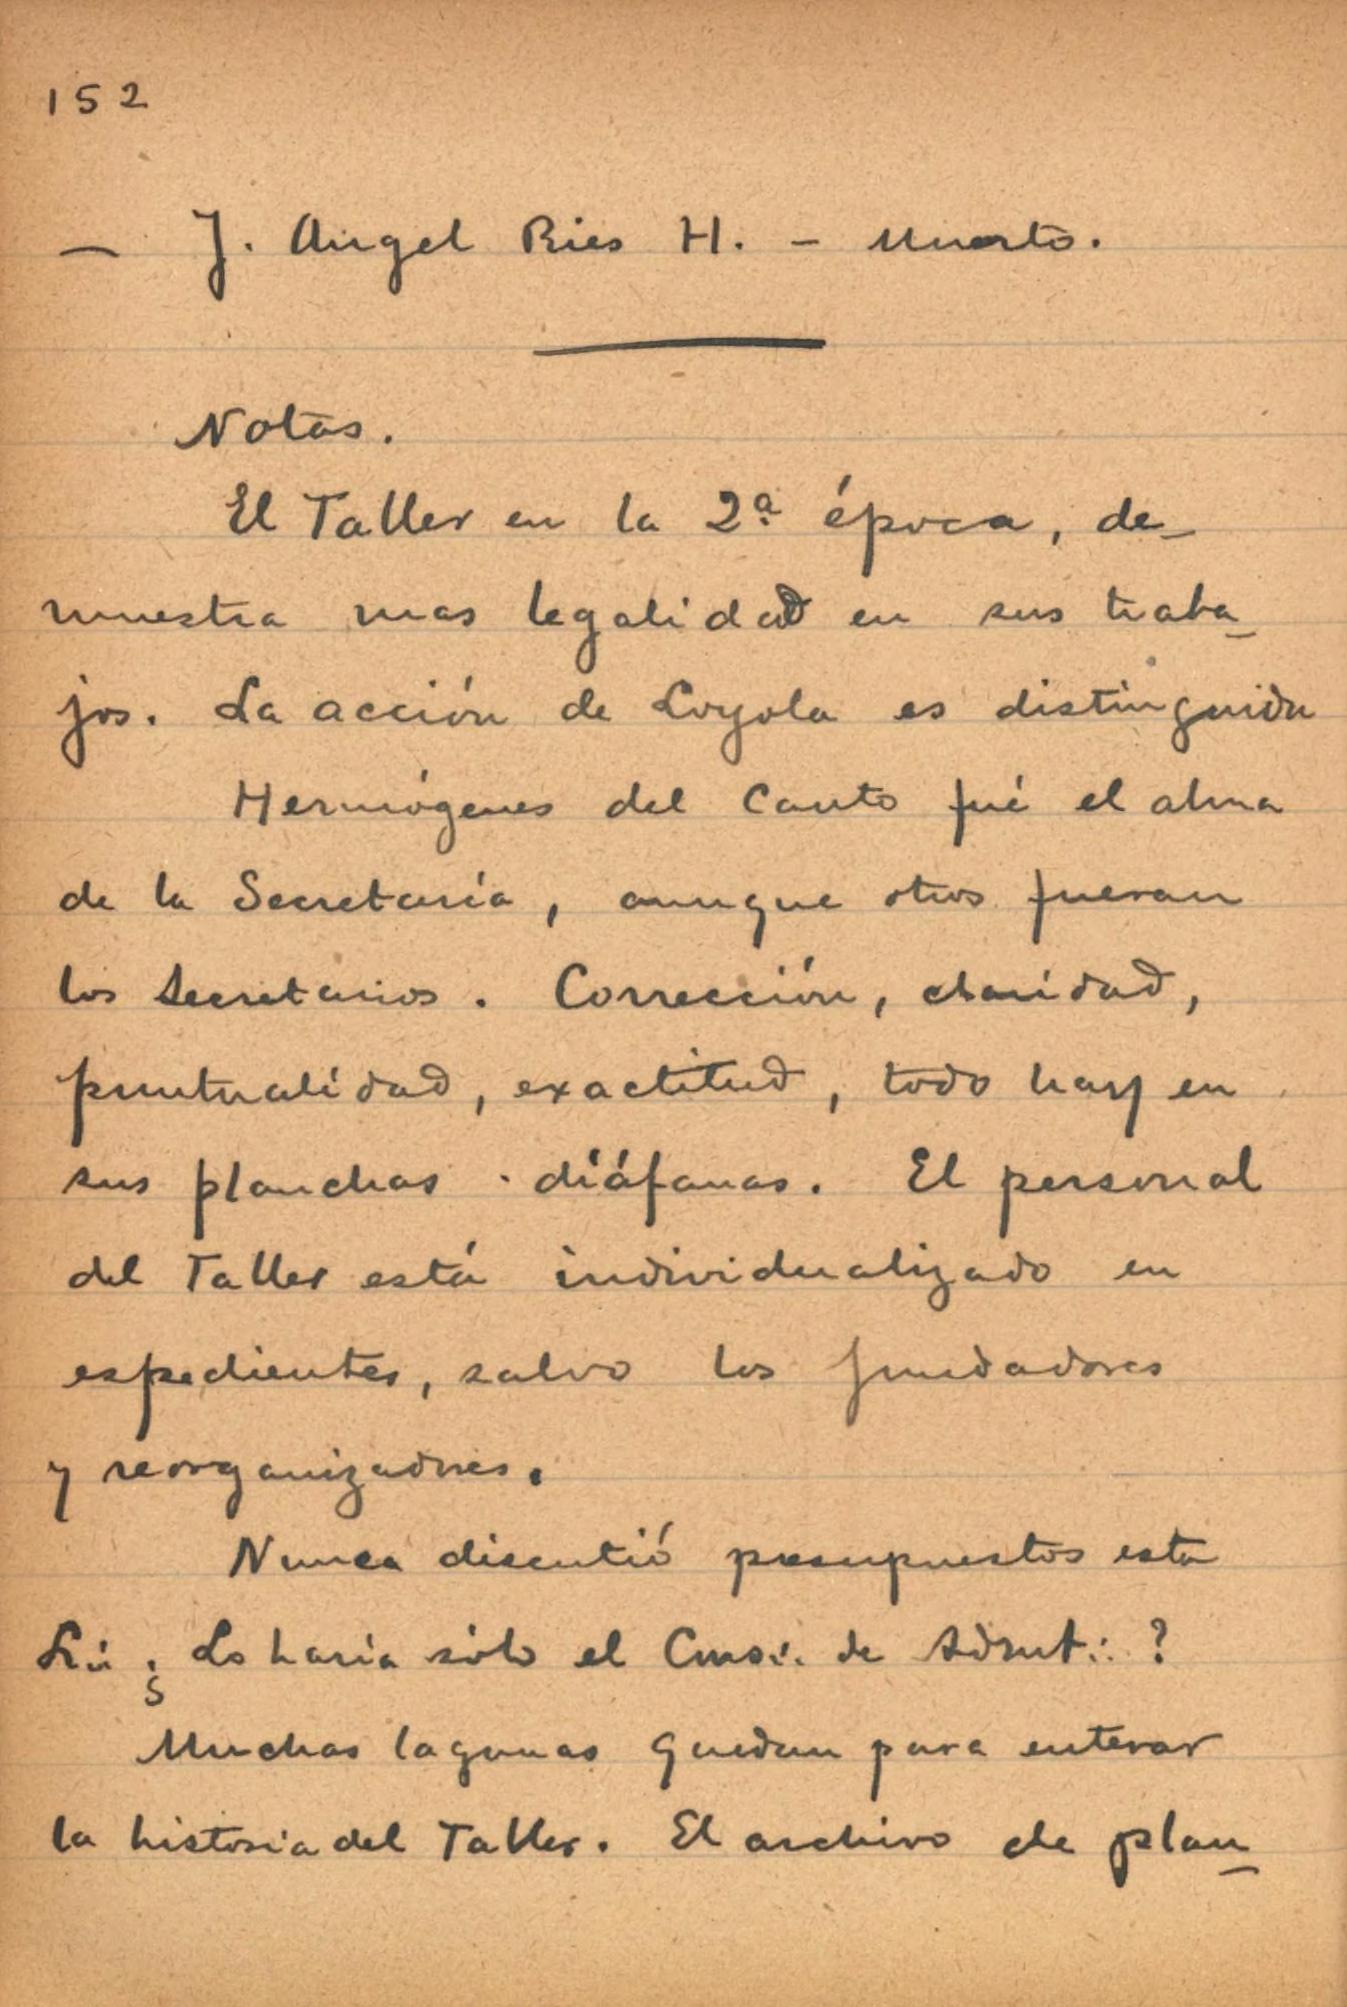 152
— J. Angel Ries H. - Muerto.
Notas.
El Taller en la 2ª época, de-
muestra mas legalidad en sus traba-
jos. La acción de Loyola es distinguida
Hermógenes del Canto fué el alma
de la Secretaría, aunque otros fueran
los secretarios. Corrección, claridad,
puntualidad, exactitud, todo hay en
sus planchas diáfanas. El personal
del Taller está individualizado en
espedientes, salvo los fundadores
y reorganizadores.
Nunca discutió presupuestos esta
¿Lo haría sólo el Cons∴ de Admt∴ ?
Muchas lagunas quedan para enterar
la historia del Taller. El archivo de plan-